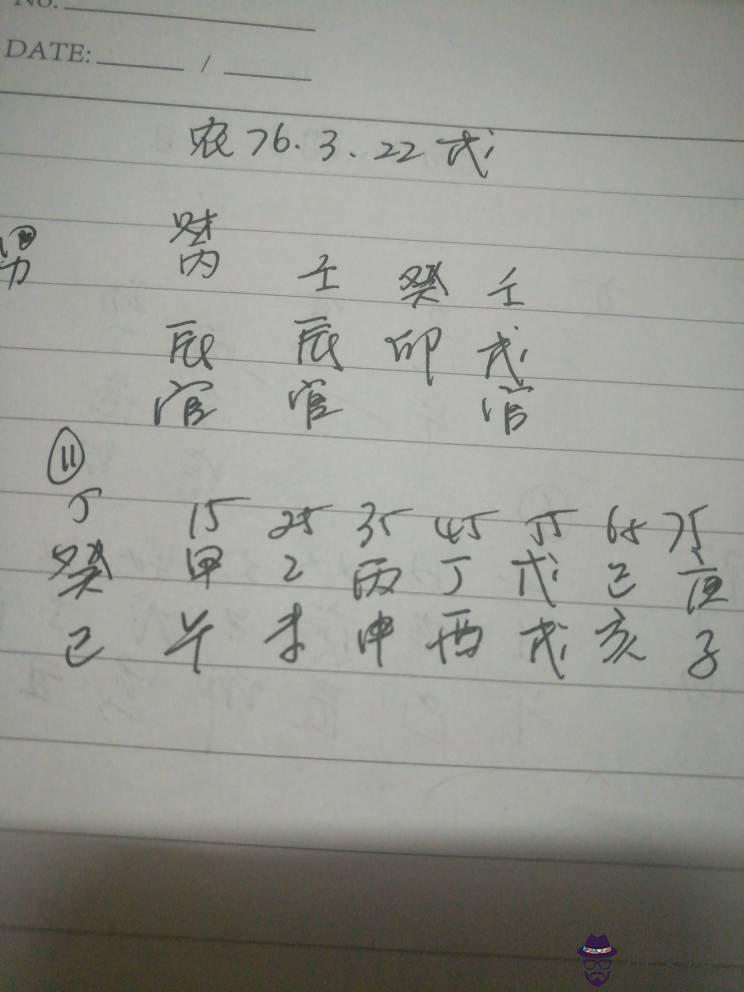 No.
DATE: /
农76.3.22戌
男 财
丙 壬 癸 壬
辰 辰 卯 戌
官 官 官
⑪
5 15 25 35 45 55 65 75
癸 甲 乙 丙 丁 戊 己 庚
巳 午 未 申 酉 戌 亥 子